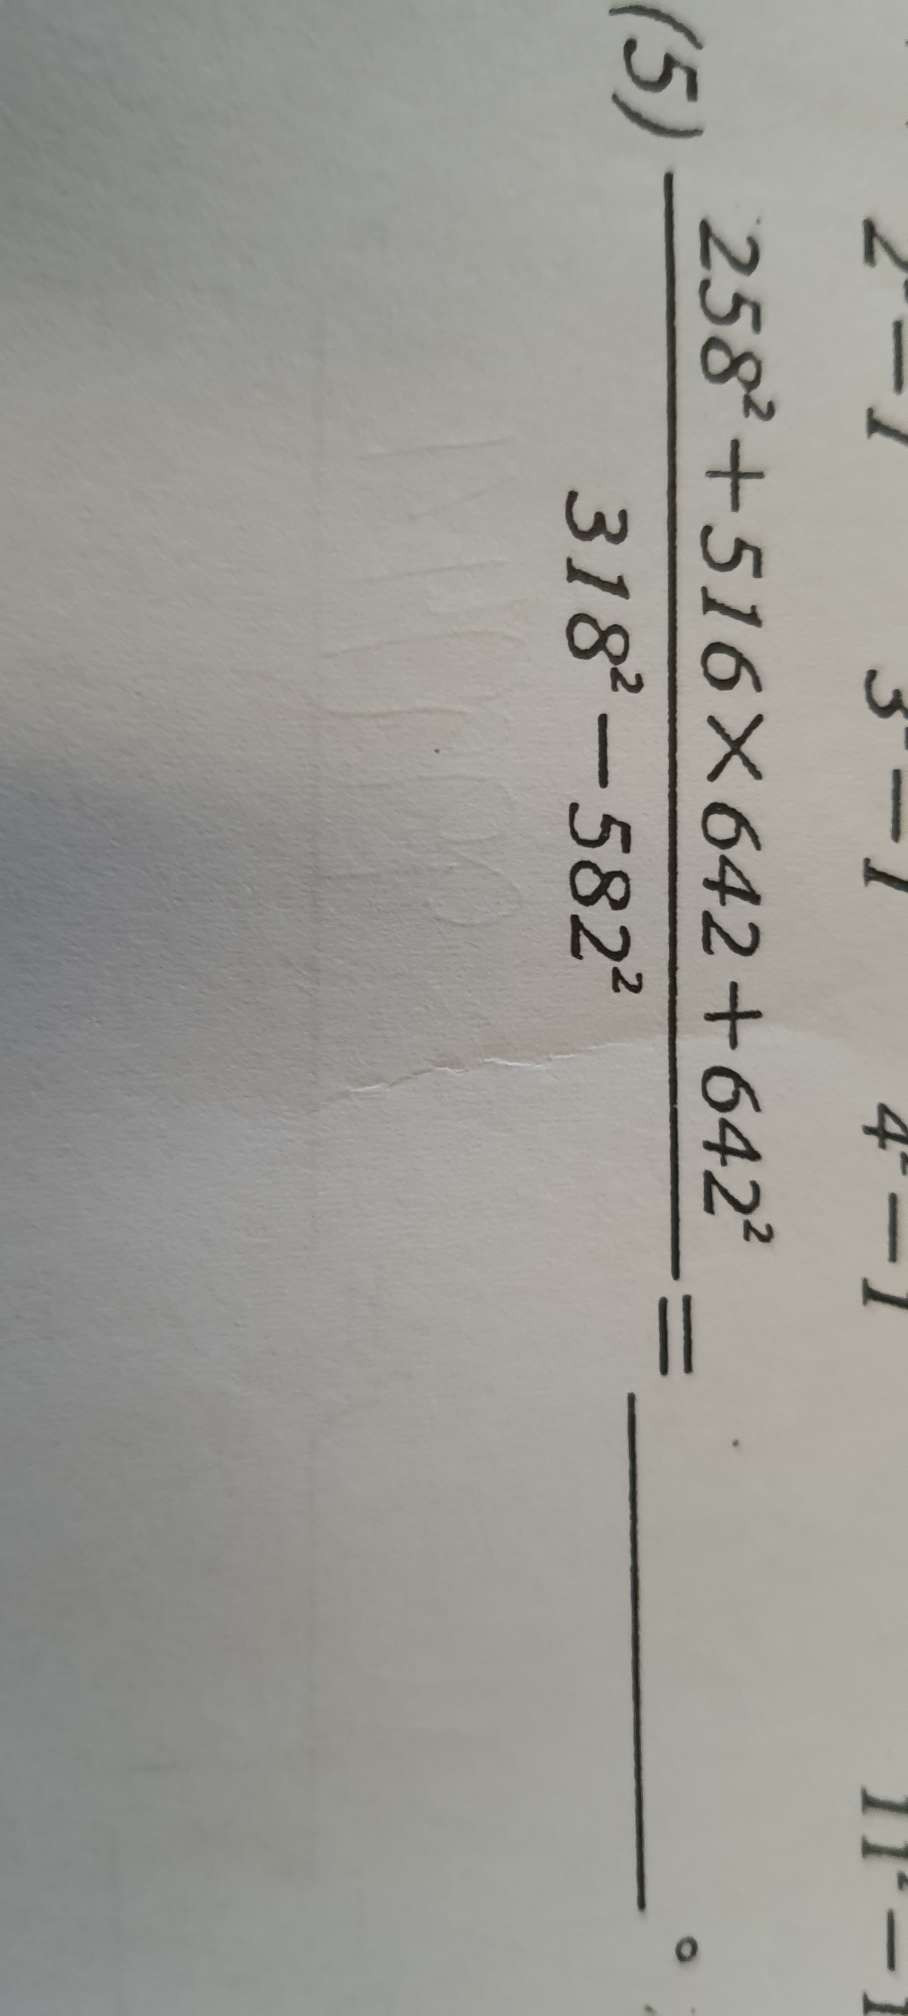 2²－1 3²－1 4²－1 11²－1
(5) \frac{258²＋516×642＋642²}{318²－582²}＝______。